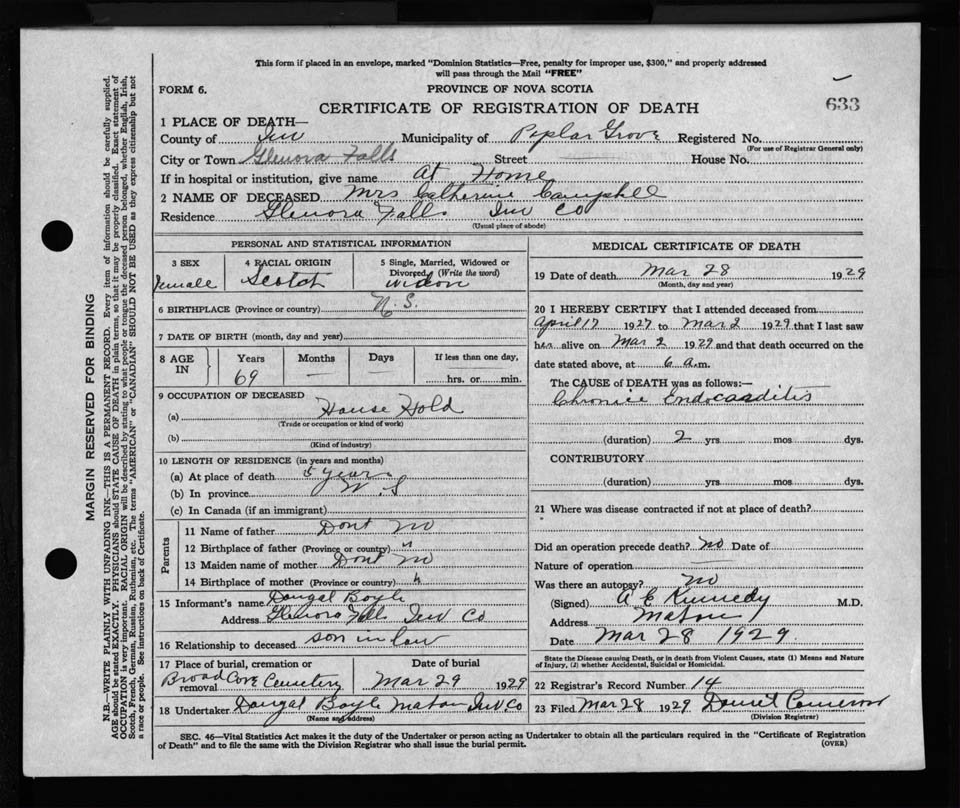 This form if placed in an envelope, marked "Dominion Statistics—Free, penalty for improper use, $300," and properly addressed
will pass through the Mail "FREE"
FORM 6. PROVINCE OF NOVA SCOTIA
633
CERTIFICATE OF REGISTRATION OF DEATH
1 PLACE OF DEATH—
County of Inv Municipality of Poplar Grove Registered No.
(For use of Registrar General only)
City or Town Glenora Falls Street House No.
If in hospital or institution, give name at Home
2 NAME OF DECEASED Mrs Catherine Campbell
Residence Glenora Falls Inv Co
(Usual place of abode)
PERSONAL AND STATISTICAL INFORMATION
3 SEX 4 RACIAL ORIGIN 5 Single, Married, Widowed or
Divorced (Write the word)
Female Scotch widow
6 BIRTHPLACE (Province or country) N. S.
7 DATE OF BIRTH (month, day and year)
8 AGE IN Years Months Days If less than one day,
69 — — hrs. or min.
9 OCCUPATION OF DECEASED
(a) House Hold
(Trade or occupation or kind of work)
(b)
(Kind of industry)
10 LENGTH OF RESIDENCE (in years and months)
(a) At place of death 5 years
(b) In province N. S
(c) In Canada (if an immigrant)
Parents
11 Name of father Dont no
12 Birthplace of father (Province or country) "
13 Maiden name of mother Dont no
14 Birthplace of mother (Province or country) "
15 Informant's name Dougal Boyle
Address Glenora Falls Inv Co
16 Relationship to deceased son in law
17 Place of burial, cremation or removal Date of burial
Broad Cove Cemetery Mar 29 1929
18 Undertaker Dougal Boyle Mabou Inv Co
(Name and address)
MEDICAL CERTIFICATE OF DEATH
19 Date of death Mar 28 1929
(Month, day and year)
20 I HEREBY CERTIFY that I attended deceased from
April 17 1927 to Mar 2 1929 that I last saw
her alive on Mar 2 1929 and that death occurred on the
date stated above, at 6 a.m.
The CAUSE of DEATH was as follows:—
Chronice Endocaaditis
(duration) 2 yrs. mos. dys.
CONTRIBUTORY
(duration) yrs. mos. dys.
21 Where was disease contracted if not at place of death?
Did an operation precede death? no Date of
Nature of operation
Was there an autopsy? no
(Signed) A E Kennedy M.D.
Address Mabou
Date Mar 28 1929
State the Disease causing Death, or in death from Violent Causes, state (1) Means and Nature
of Injury, (2) whether Accidental, Suicidal or Homicidal.
22 Registrar's Record Number 14
23 Filed Mar 28 1929 Cameron
(Division Registrar)
SEC. 46—Vital Statistics Act makes it the duty of the Undertaker or person acting as Undertaker to obtain all the particulars required in the "Certificate of Registration
of Death" and to file the same with the Division Registrar who shall issue the burial permit.
(OVER)
MARGIN RESERVED FOR BINDING
N.B.—WRITE PLAINLY WITH UNFADING INK—THIS IS A PERMANENT RECORD. Every item of information should be carefully supplied.
AGE should be stated EXACTLY. PHYSICIANS should STATE CAUSE OF DEATH in plain terms, so that it may be properly classified. Exact statement of
OCCUPATION is very important. RACIAL ORIGIN will be described by stating to what people or tongue the deceased person belonged, whether English, Irish,
Scotch, French, German, Russian, Ruthenian, etc. The terms "AMERICAN" or "CANADIAN" SHOULD NOT BE USED as they express citizenship but not
a race or people. See instructions on back of Certificate.